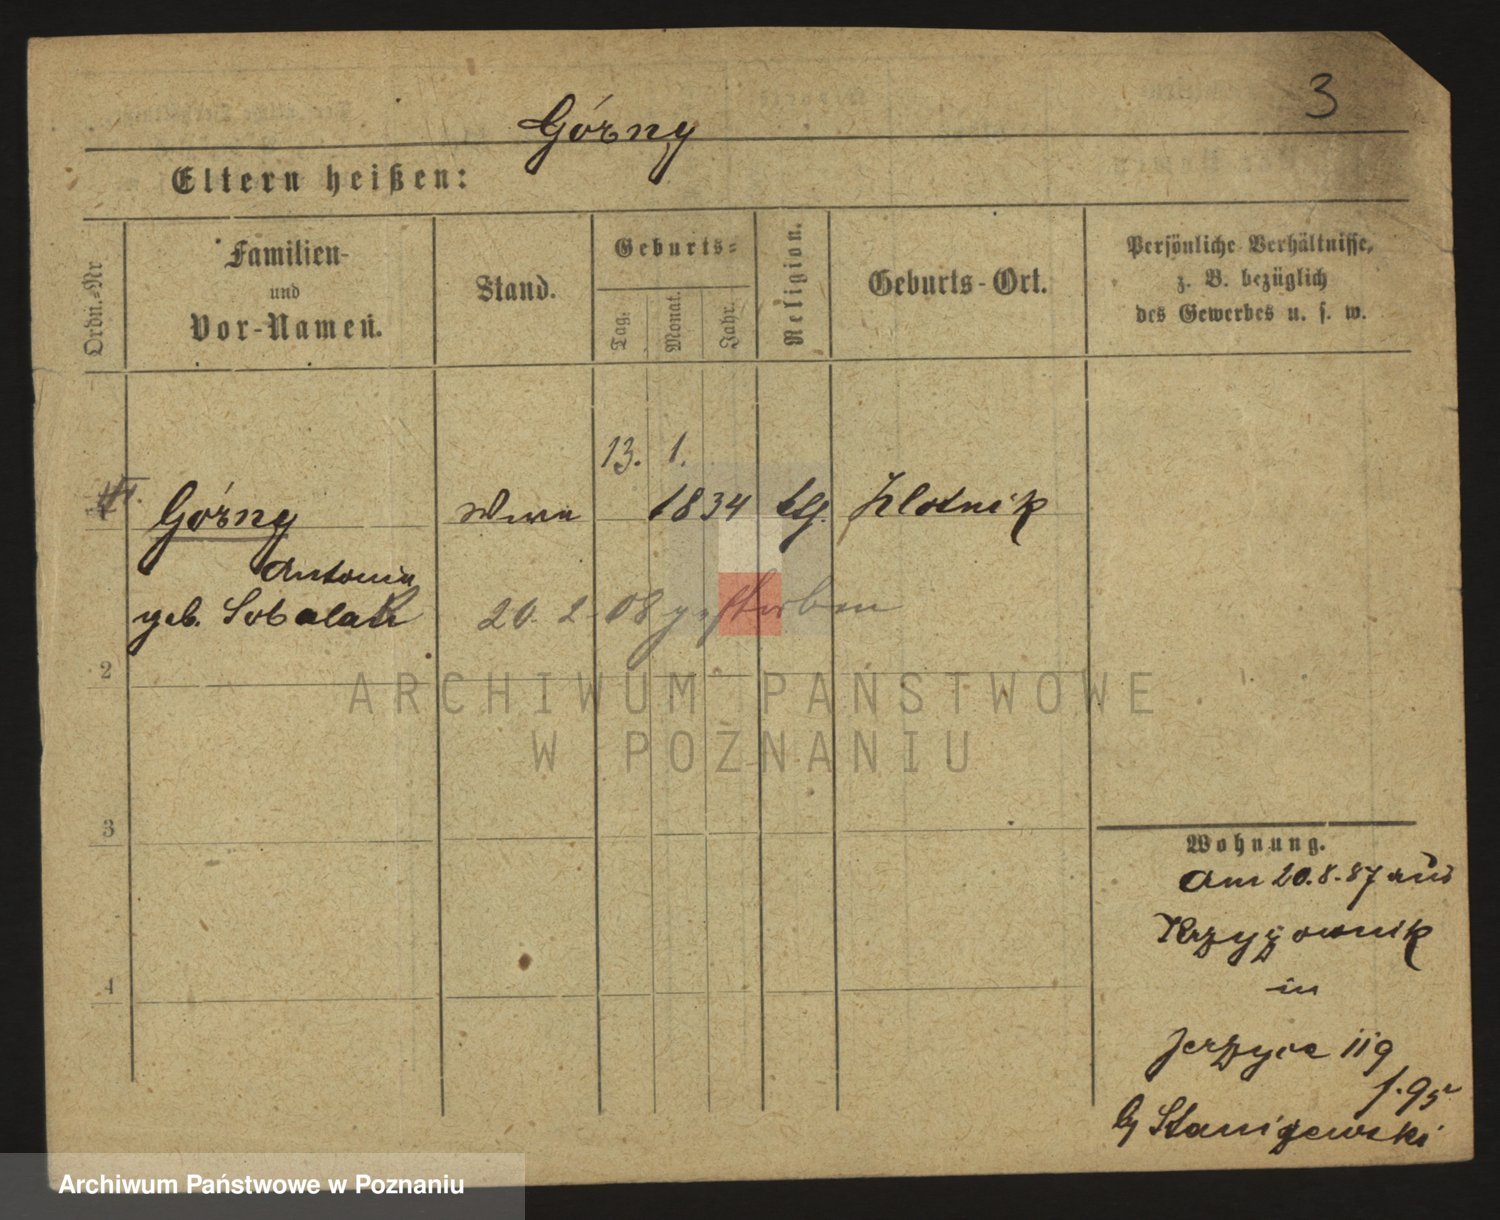 3
Górny
Eltern heißen:
Ordn.-Nr
Familien-
und
Vor-Namen.
Stand.
Geburts-
Tag.
Monat.
Jahr.
Religion.
Geburts-Ort.
Persönliche Verhältnisse,
z. B. bezüglich
des Gewerbes u. s. w.
13. 1.
Górny 1834 Zlotnik
Antonia
geb. Sobalak 20. 2. 08 gestorben
2
ARCHIWUM PAŃSTWOWE
W POZNANIU
3
4
Wohnung.
Am 20.8.87 aus
Krzyżownik
in
Jerzyce 119
b/ Staniszewski
Archiwum Państwowe w Poznaniu